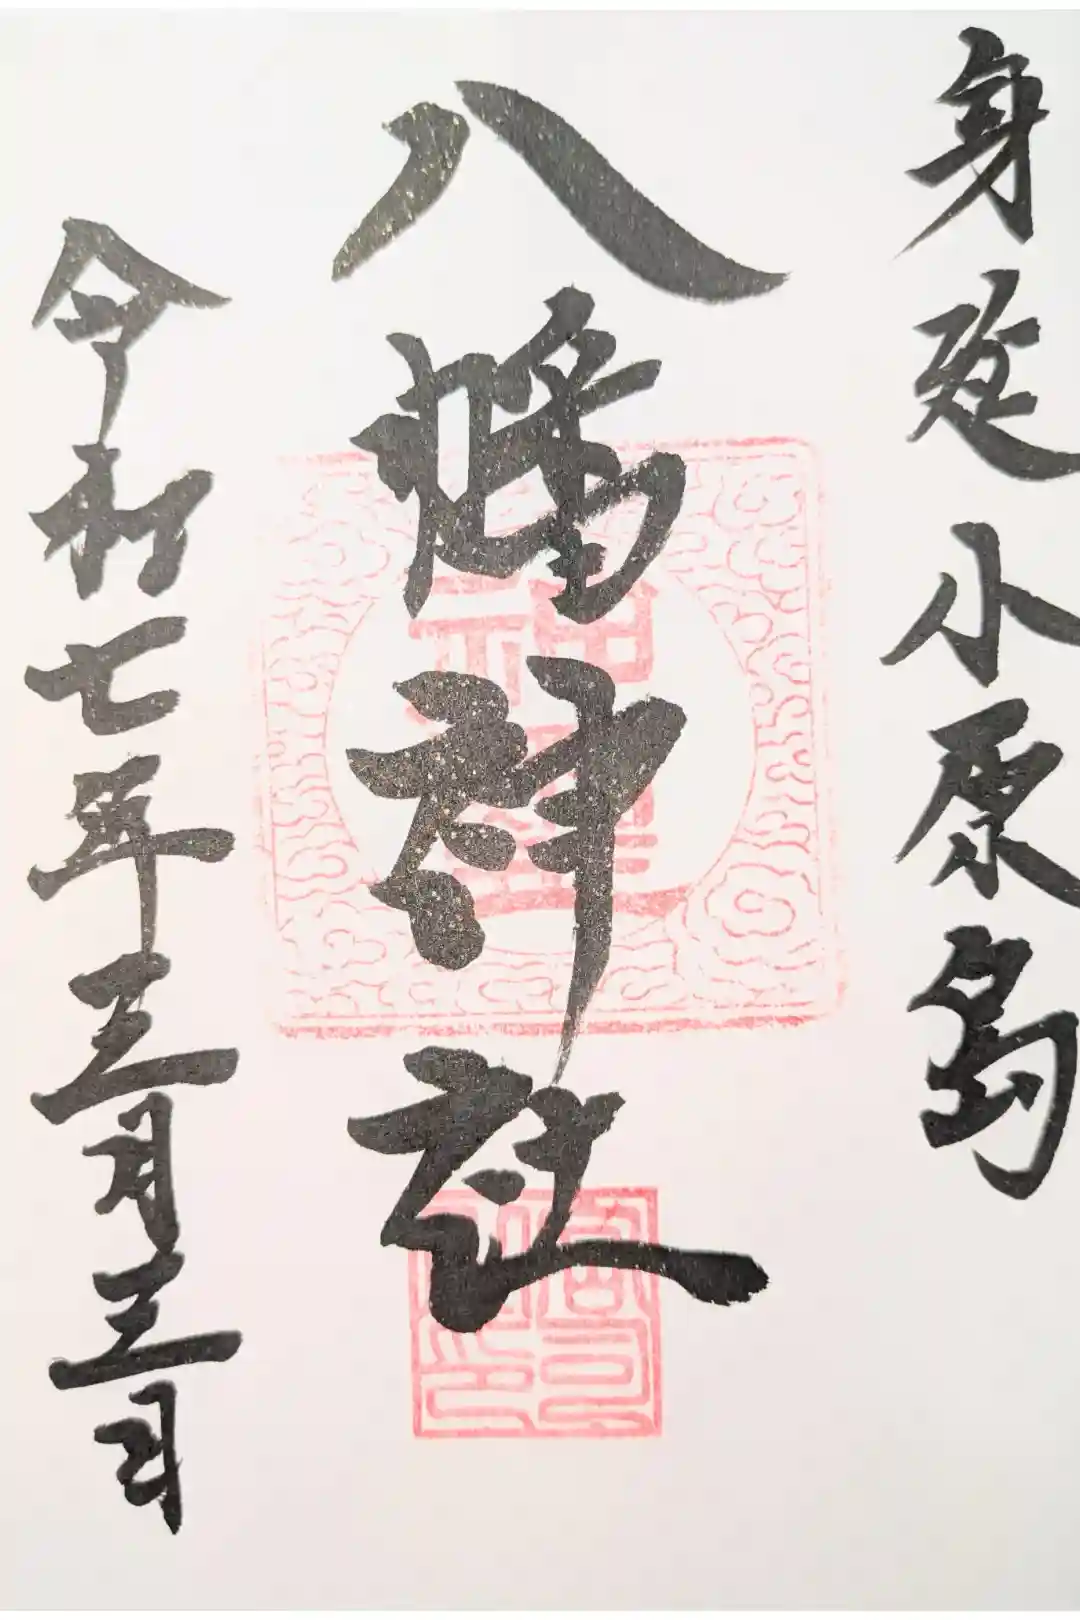 身延 小原島
八幡神社
令和七年三月三日